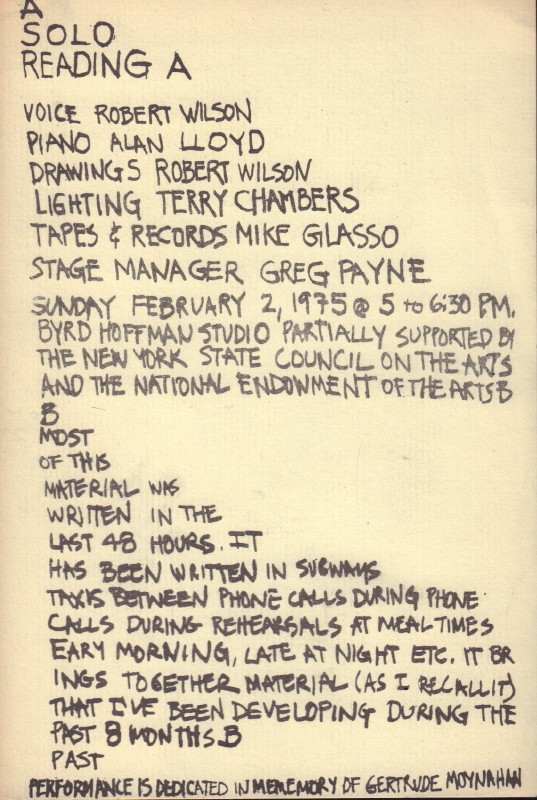 A
SOLO
READING A
VOICE ROBERT WILSON
PIANO ALAN LLOYD
DRAWINGS ROBERT WILSON
LIGHTING TERRY CHAMBERS
TAPES & RECORDS MIKE GLASSO
STAGE MANAGER GREG PAYNE
SUNDAY FEBRUARY 2, 1975 @ 5 TO 6:30 PM.
BYRD HOFFMAN STUDIO PARTIALLY SUPPORTED BY
THE NEW YORK STATE COUNCIL ON THE ARTS
AND THE NATIONAL ENDOWMENT OF THE ARTS B
B
MOST
OF THIS
MATERIAL WAS
WRITTEN IN THE
LAST 48 HOURS. IT
HAS BEEN WRITTEN IN SUBWAYS
TAXIS BETWEEN PHONE CALLS DURING PHONE
CALLS DURING REHEARSALS AT MEALTIMES
EARY MORNING, LATE AT NIGHT ETC. IT BR
INGS TOGETHER MATERIAL (AS I RECALL IT)
THAT I'VE BEEN DEVELOPING DURING THE
PAST 8 MONTHS. B
PAST
PERFORMANCE IS DEDICATED IN MEMEMORY OF GERTRUDE MOYNAHAN